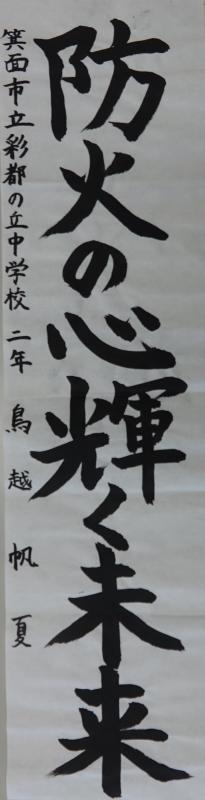 防火の心輝く未来
箕面市立彩都の丘中学校二年 鳥越帆夏